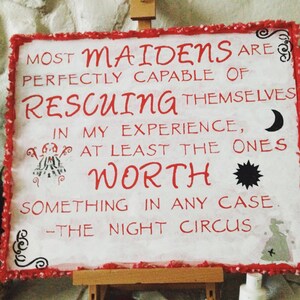 MOST MAIDENS ARE
PERFECTLY CAPABLE OF
RESCUING THEMSELVES
IN MY EXPERIENCE,
AT LEAST THE ONES
WORTH
SOMETHING IN ANY CASE.
-THE NIGHT CIRCUS